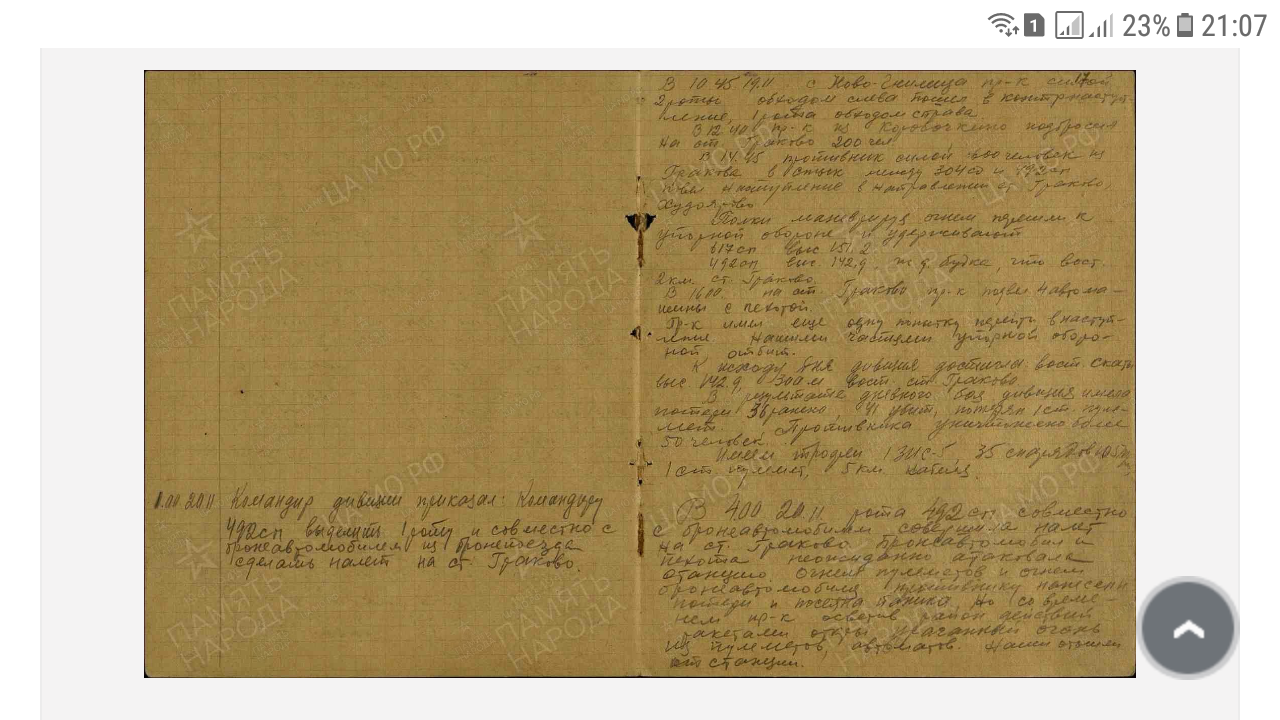 1 23% 21:07
В 10.45 19.11 с Ново-Гнилица пр-к силой
2 роты обходом слева пошел в контрнаступ-
ление, 1 рота обходом справа.
В 12.40 пр-к из Коробочкино подбросил
на ст. Граково 200 чел
В 14.45 противник силой человек из
Гракова в стык между 304 сд и 492 сп
повел наступление в направлении ст. Граково
Полки маневрируя огнем перешли к
упорной обороне и удерживают
617 сп выс 151.2
492 сп выс. 142,9 ж.д. будка, что вост.
2 км ст. Граково.
В 16.00 на ст. Граково пр-к подвел 4 автома-
шины с пехотой.
Пр-к имел еще одну попытку перейти в наступ-
ление. Нашими частями упорной оборо-
ной отбит.
К исходу дня дивизия достигла вост. скаты
выс 142,9, 300 м вост. ст. Граково
В результате дневного боя дивизия имела
потери 36 ранено, 41 убит, потерян 1 ст. пуле-
мет. Противника уничтожено более
50 человек.
Имеем трофеи 1 ЗИС-5, 35 снарядов
1 ст. пулемет, 5 км кабеля.
20.11 Командир дивизии приказал: Командиру
492 сп выделить 1 роту и совместно с
бронеавтомобилем из бронепоезда
сделать налет на ст. Граково.
В 4.00 20.11 рота 492 сп совместно
с бронеавтомобилем совершила налет
на ст. Граково. Бронеавтомобили и
пехота неожиданно атаковала
станцию. Огнем пулеметов и огнем
бронеавтомобиля противнику нанесены
потери и посеяна паника. Но со време-
нем пр-к осветив район действий
ракетами открыл ураганный огонь
из пулеметов, автоматов. Наши отошли
от станции.
ЦА МО РФ
ПАМЯТЬ
НАРОДА